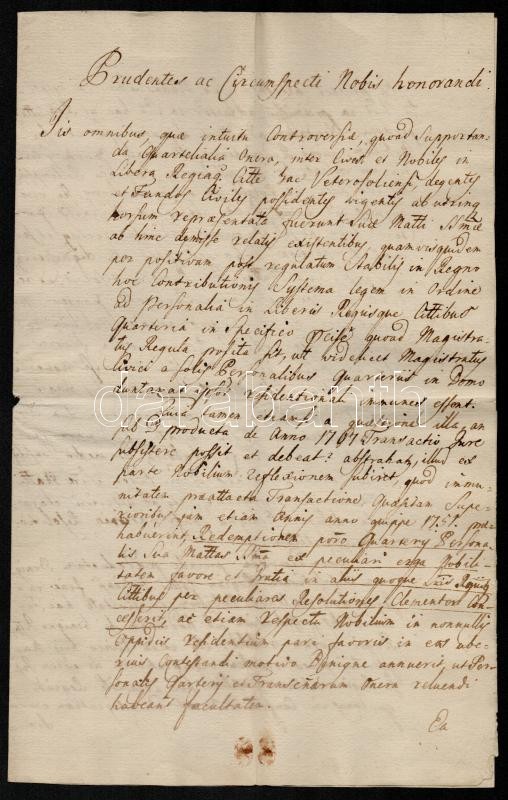 Prudentes ac Circumspecti Nobis honorandi.
Jis omnibus, quæ intuitu Controversiæ, quoad Supportan-
da Quartelialia Onera, inter Cives et Nobiles in
Libera Regiaq. Citte hac Veterosoliensi, degentes
et Fundos Civiles possidentes vigentis ab utring
horsum repræsentata fuerunt Suæ Matti Ssmæ
ab hinc demisse relatis existentibus, quamvis quidem
per positivam post regulatum stabilis in Regno
hoc Contributionis Systema legem in Ordine
ad Personalia in Liberis Regiisque Cittibus
Quarteria in Specifico quoad Magistra-
tus Regula posita sit, ut videlicet Magistratus
Civici a solis Personalibus Quarteriis in Domo
residentionali immunes essent.
Quia tamen etiam a quæstione illa, an
producta de Anno 1767 Transactio Jure
subsistere possit et debeat? abstrahat, illud ex
parte Nobilium reflexionem subiret, quod immu-
nitatem præattacta Transactione Quæsitam Supe-
rioribus jam etiam Annis anno quippe 1757. præ-
habuerint, Redemptionem porro Quartery Persona-
lis Sua Mattas Ssma ex peculiari erga Nobili-
tatem favore et Gratia in aliis quoque Suis Regiisq
Cittibus per peculiares Resolutiones Clementer Con-
cesserit, ac etiam respectu Nobilium in nonnullis
Oppidis residentium pari favoris in eos ube-
rius Contestandi motivo Benigne annuerit, ut Per-
sonalis Quartery et Transennarum Onera reluendi
habeant facultatem.
Ea
darabanth